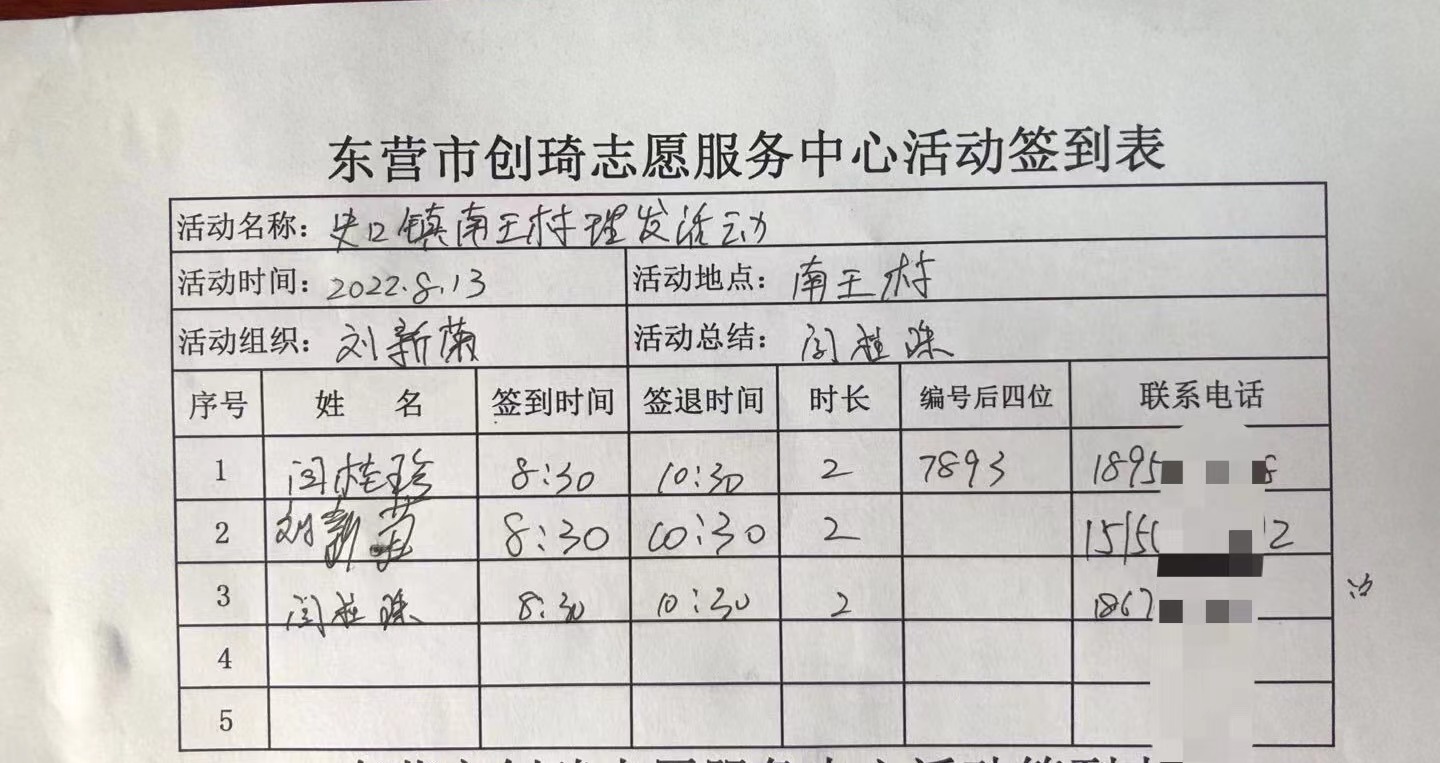 东营市创琦志愿服务中心活动签到表
活动名称：史口镇南王村理发活动
活动时间：2022.8.13 活动地点：南王村
活动组织：刘新菊 活动总结：闫桂珠
序号 姓名 签到时间 签退时间 时长 编号后四位 联系电话
1 闫桂珍 8:30 10:30 2 7893 1895
2 刘新 8:30 10:30 2 1515 12
3 闫桂珠 8:30 10:30 2 1867
4
5